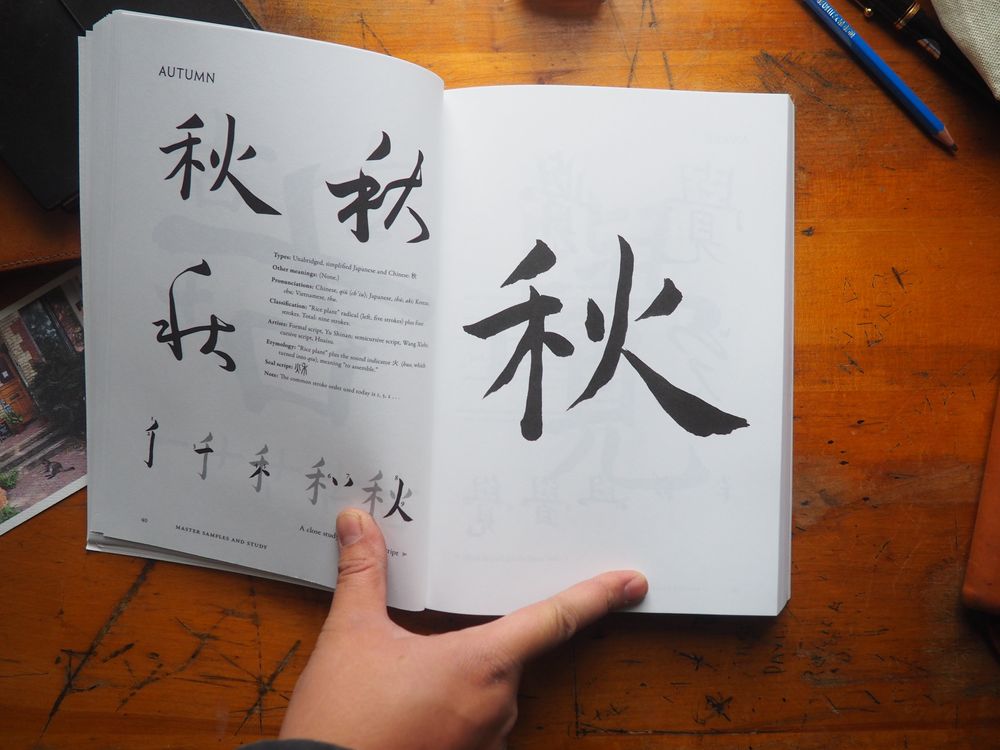 AUTUMN
秋
秋
秋
Types: Unabridged, simplified Japanese and Chinese: 秋
Other meanings: (None.)
Pronunciations: Chinese, qiū (ch'iu); Japanese, shū, aki; Korean,
chu; Vietnamese, thu.
Classification: "Rice plant" radical (left; five strokes) plus five
strokes. Total: nine strokes.
Artists: Formal script, Yu Shinan; semicursive script, Wang Xizhi;
cursive script, Huaisu.
Etymology: "Rice plant" plus the sound indicator 火 (huo, which
turned into qiu), meaning "to assemble."
Seal script:
Note: The common stroke order used today is 2, 3, 1 . . .
千 禾 秋
A close stud
ript
40 MASTER SAMPLES AND STUDY
秋